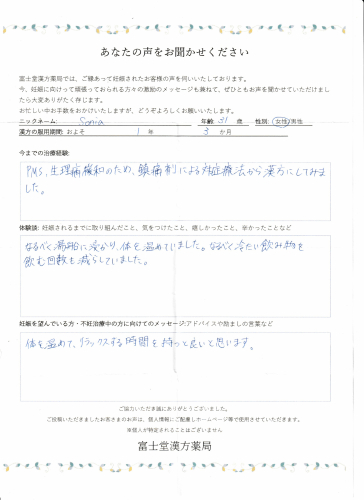 あなたの声をお聞かせください
富士堂漢方薬局では、ご縁あって妊娠されたお客様の声を伺いいたしております。
今、妊娠に向けって頑張っておられる方々の激励のメッセージも兼ねて、ぜひともお声を聞かせていただけまし
たら大変ありがたく存じます。
お忙しい中お手数をおかけいたしますが、どうぞよろしくお願いいたします。
ニックネーム: Sonia 年齢: 31 歳 性別: 女性/男性
漢方の服用期間: およそ 1 年 3 か月
今までの治療経験:
PMS、生理痛緩和のため、鎮痛剤による対症療法から漢方にしてみま
した。
体験談: 妊娠されるまでに取り組んだこと、気をつけたこと、嬉しかったこと、辛かったことなど
なるべく湯船に浸かり、体を温めていました。なるべく冷たい飲み物を
飲む回数も減らしていました。
妊娠を望んでいる方・不妊治療中の方に向けてのメッセージ:アドバイスや励ましの言葉など
体を温めて、リラックスする時間を持つと良いと思います。
ご協力いただき誠にありがとうございました。
ご投稿いただきましたお客さまのお声は、個人情報にご配慮しホームページ等で使用させていただきます。
※個人が特定されることはございません
富士堂漢方薬局